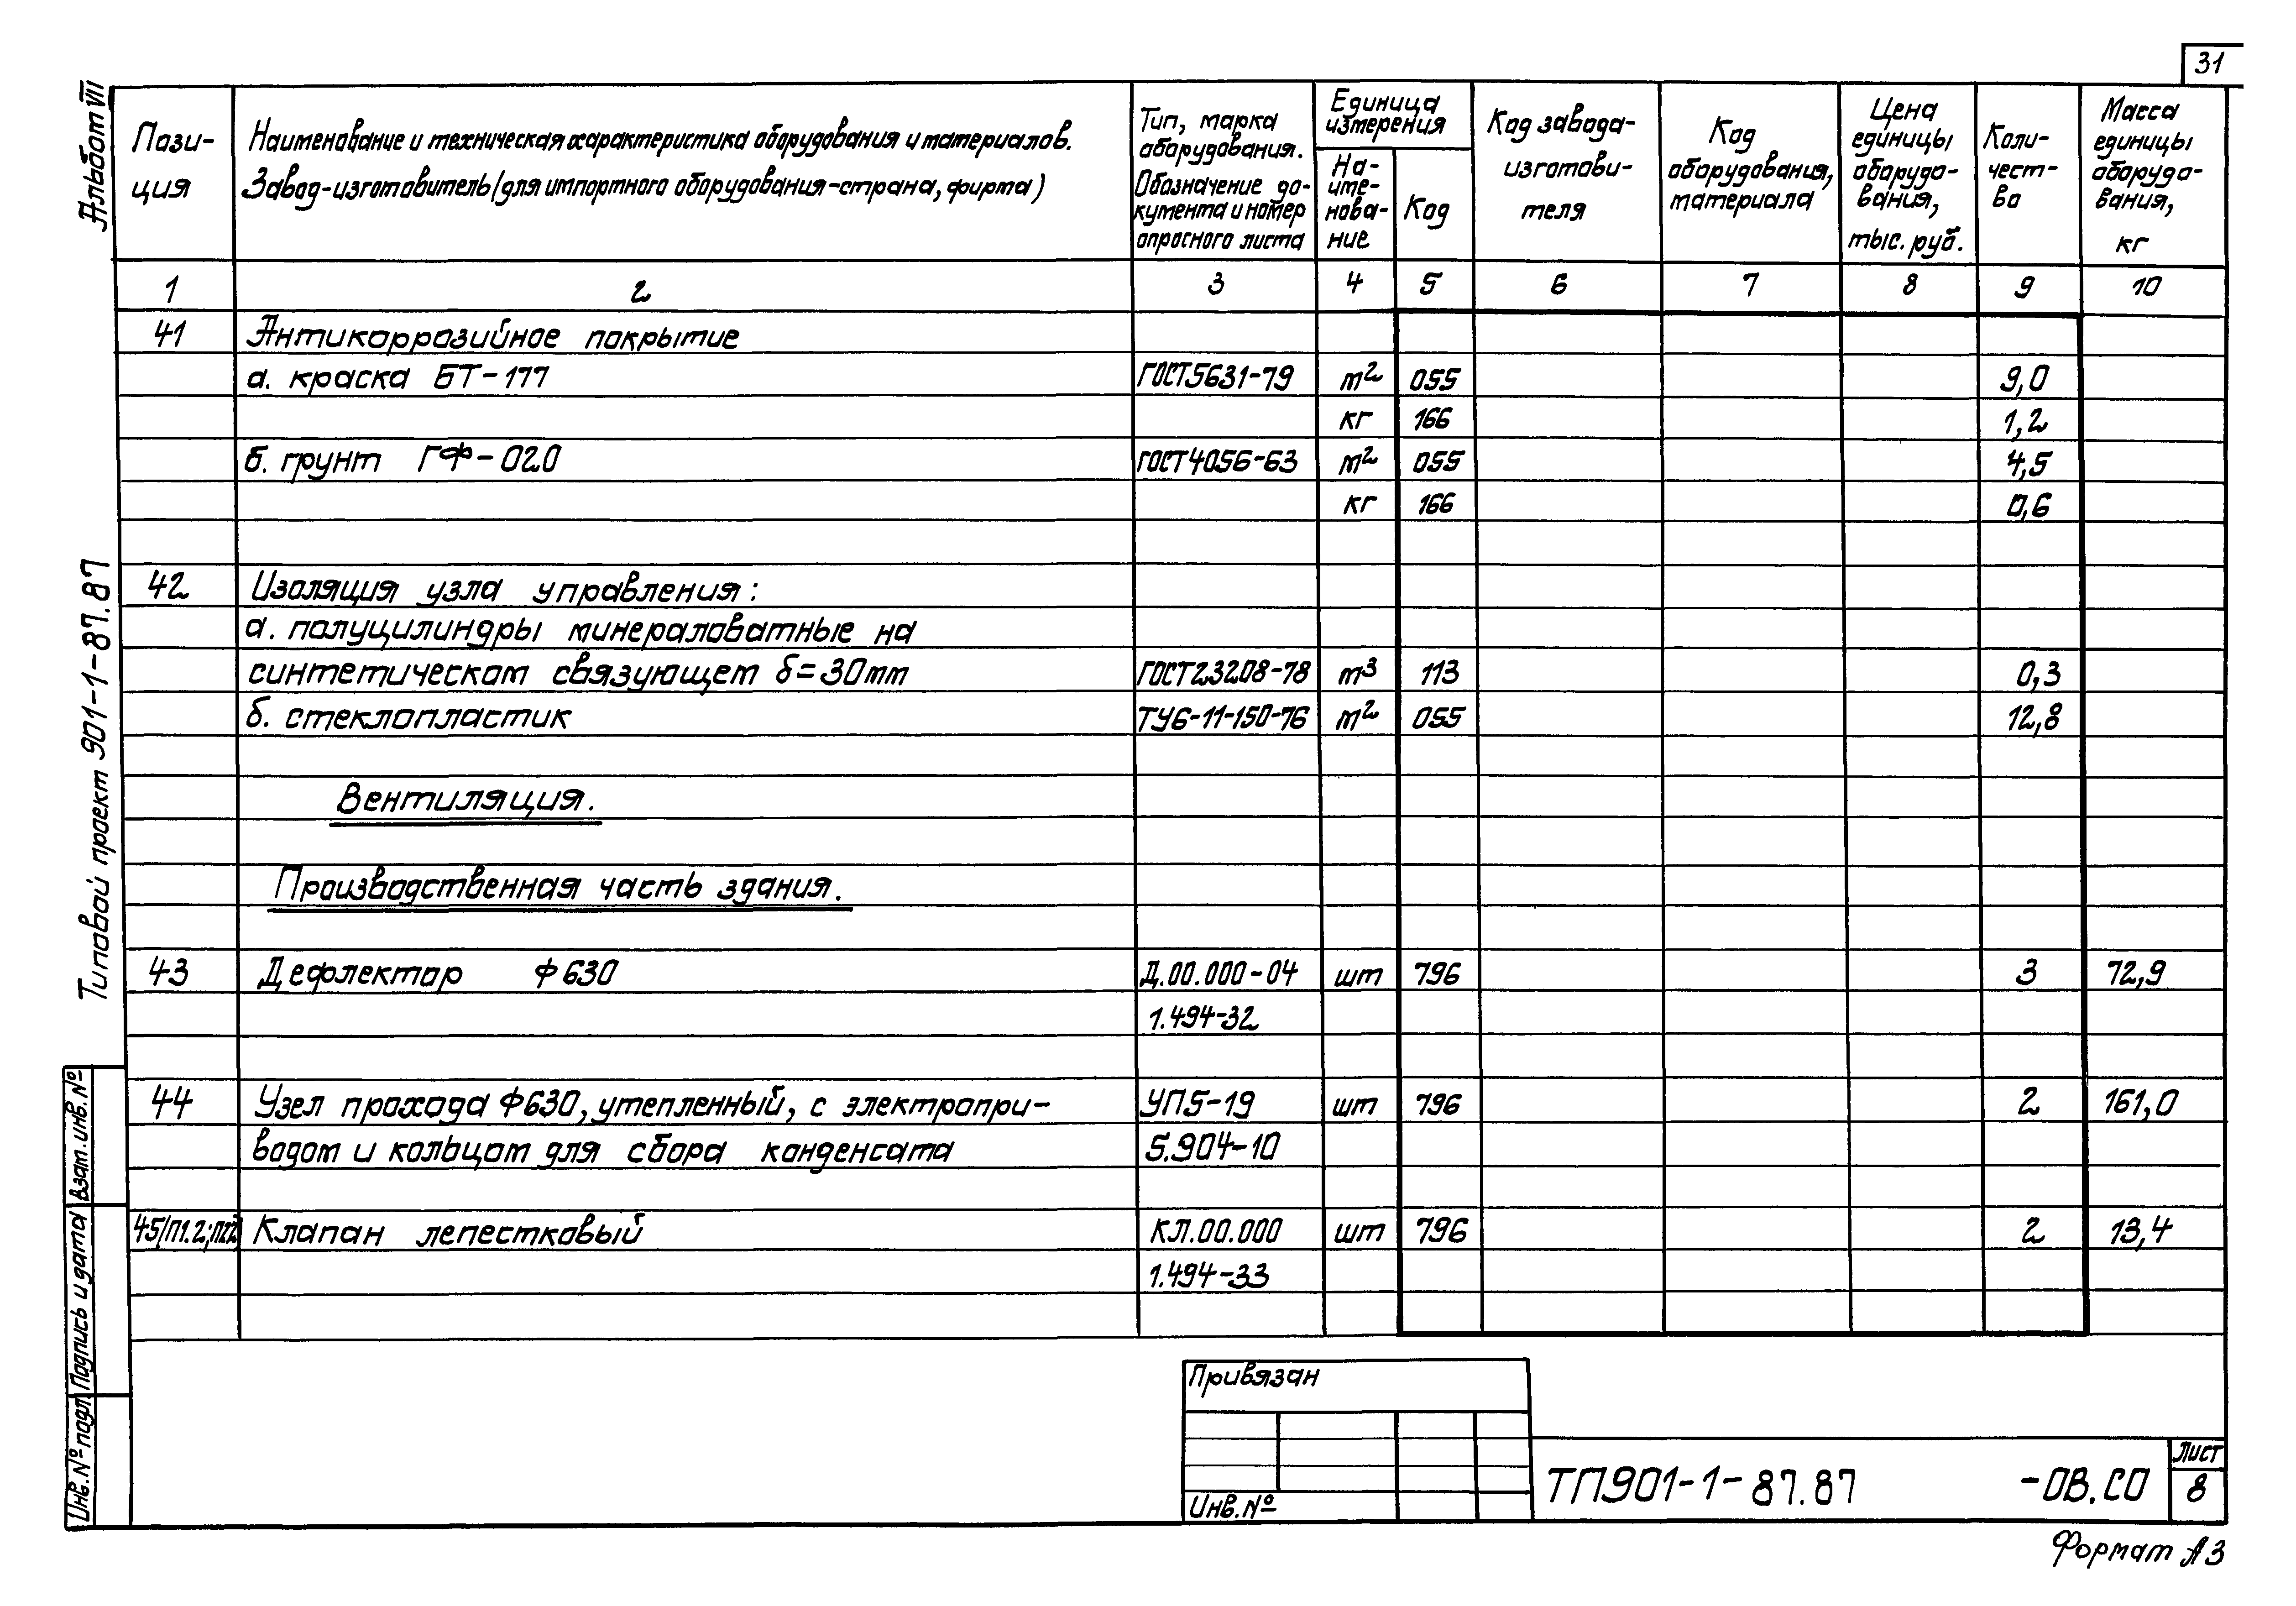 31
Альбом VII
Типовой проект 901-1-87.87
Взам. инв. №
Подпись и дата
Инв. № подл.
Пози-
ция
Наименование и техническая характеристика оборудования и материалов.
Завод-изготовитель (для импортного оборудования-страна, фирма)
Тип, марка
оборудования.
Обозначение до-
кумента и номер
опросного листа
Единица
измерения
На-
име-
нова-
ние
Код
Код завода-
изготови-
теля
Код
оборудования,
материала
Цена
единицы
оборудо-
вания,
тыс. руб.
Коли-
чест-
во
Масса
единицы
оборудо-
вания,
кг
1 2 3 4 5 6 7 8 9 10
41 Антикоррозийное покрытие
а. краска БТ-177 ГОСТ5631-79 м² 055 9,0
кг 166 1,2
б. грунт ГФ-020 ГОСТ4056-63 м² 055 4,5
кг 166 0,6
42 Изоляция узла управления:
а. полуцилиндры минераловатные на
синтетическом связующем δ=30мм ГОСТ23208-78 м³ 113 0,3
б. стеклопластик ТУ6-11-150-76 м² 055 12,8
Вентиляция.
Производственная часть здания.
43 Дефлектор Ф630 Д.00.000-04 шт 796 3 72,9
1.494-32
44 Узел прохода Ф630, утепленный, с электропри- УП5-19 шт 796 2 161,0
водом и кольцом для сбора конденсата 5.904-10
45/П1.2;П2.2/ Клапан лепестковый КЛ.00.000 шт 796 2 13,4
1.494-33
Привязан
Инв. №
ТП901-1-87.87 -ОВ.СО
Лист
8
Формат А3